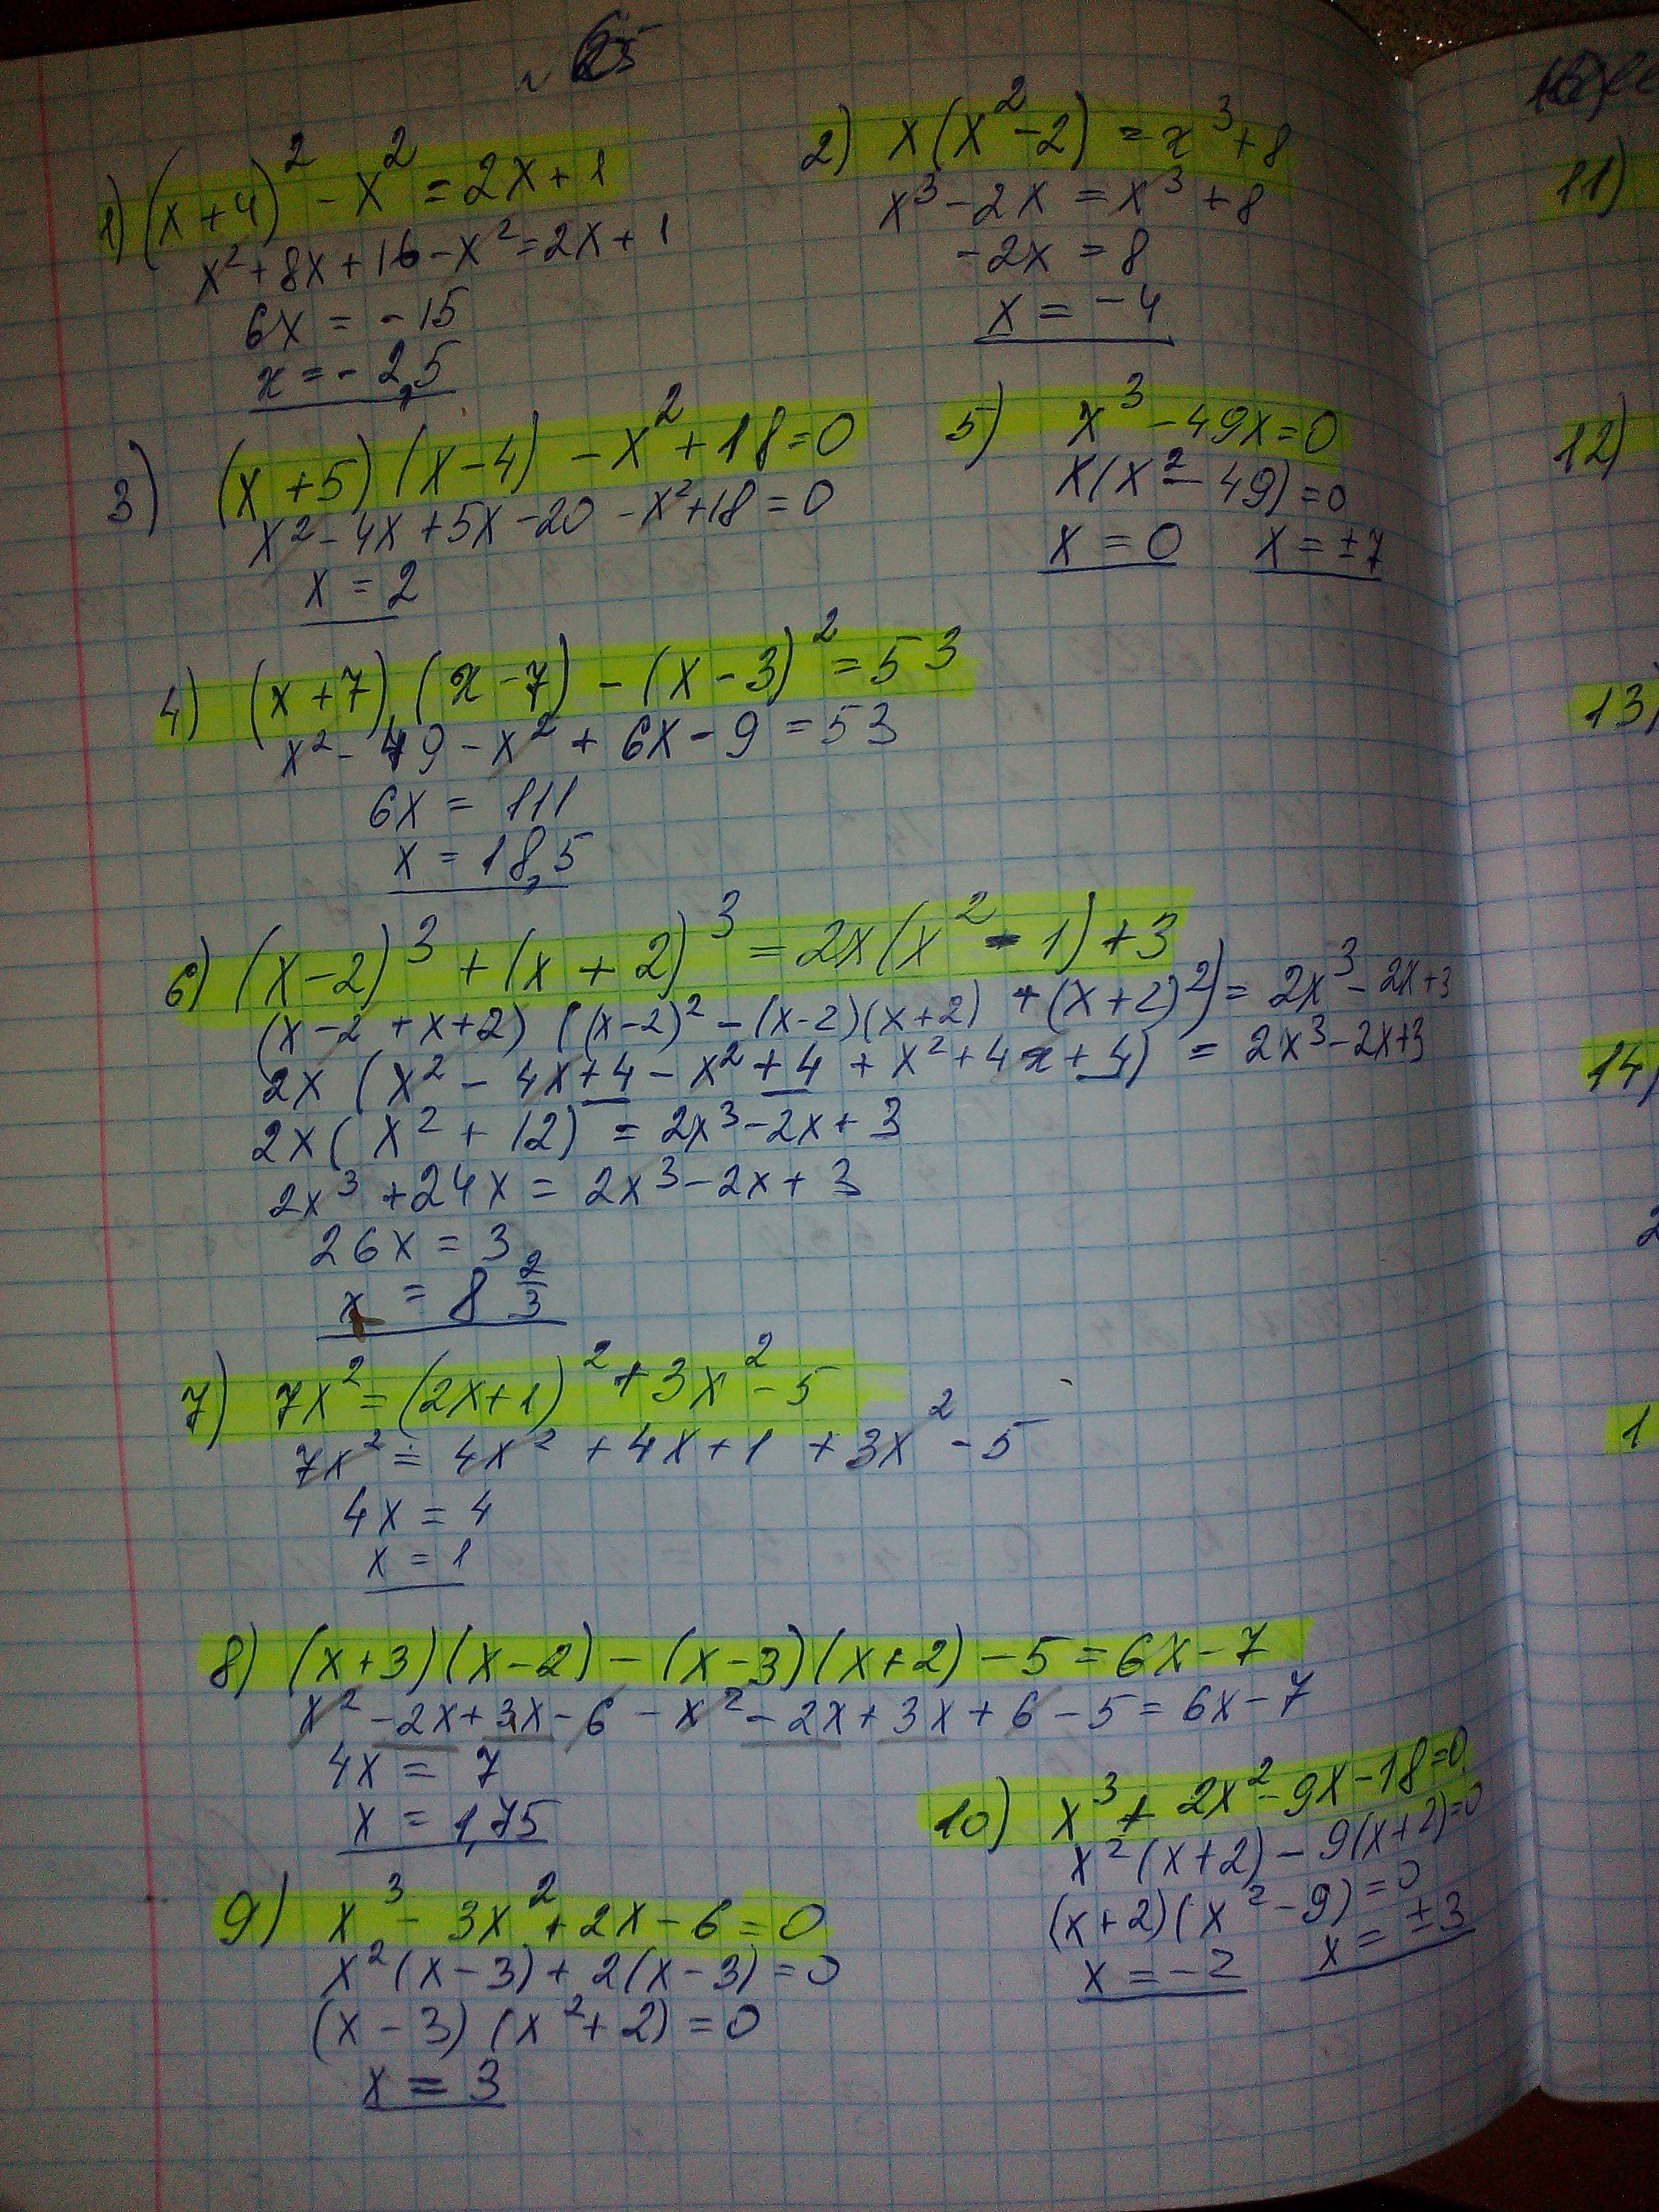 1) (x+4)² - x² = 2x+1
x²+8x+16-x²=2x+1
6x = -15
x = -2,5
2) x(x²-2) = x³+8
x³-2x = x³+8
-2x = 8
x = -4
3) (x+5)(x-4) - x²+18=0
x²-4x+5x-20-x²+18=0
x = 2
5) x³-49x=0
x(x²-49)=0
x = 0 x = ±7
4) (x+7)(x-7)-(x-3)²=53
x²-49-x²+6x-9=53
6x = 111
x = 18,5
6) (x-2)³+(x+2)³=2x(x²-1)+3
(x-2+x+2)((x-2)²-(x-2)(x+2)+(x+2)²)=2x³-2x+3
2x(x²-4x+4-x²+4+x²+4x+4)=2x³-2x+3
2x(x²+12)=2x³-2x+3
2x³+24x=2x³-2x+3
26x=3
x = 8 2/3
7) 7x²=(2x+1)²+3x²-5
7x²=4x²+4x+1+3x²-5
4x=4
x=1
8) (x+3)(x-2)-(x-3)(x+2)-5=6x-7
x²-2x+3x-6-x²-2x+3x+6-5=6x-7
4x = 7
x = 1,75
10) x³+2x²-9x-18=0
x²(x+2)-9(x+2)=0
(x+2)(x²-9)=0
x=-2 x=±3
9) x³-3x²+2x-6=0
x²(x-3)+2(x-3)=0
(x-3)(x²+2)=0
x = 3
11)
12)
13)
14)
2
1